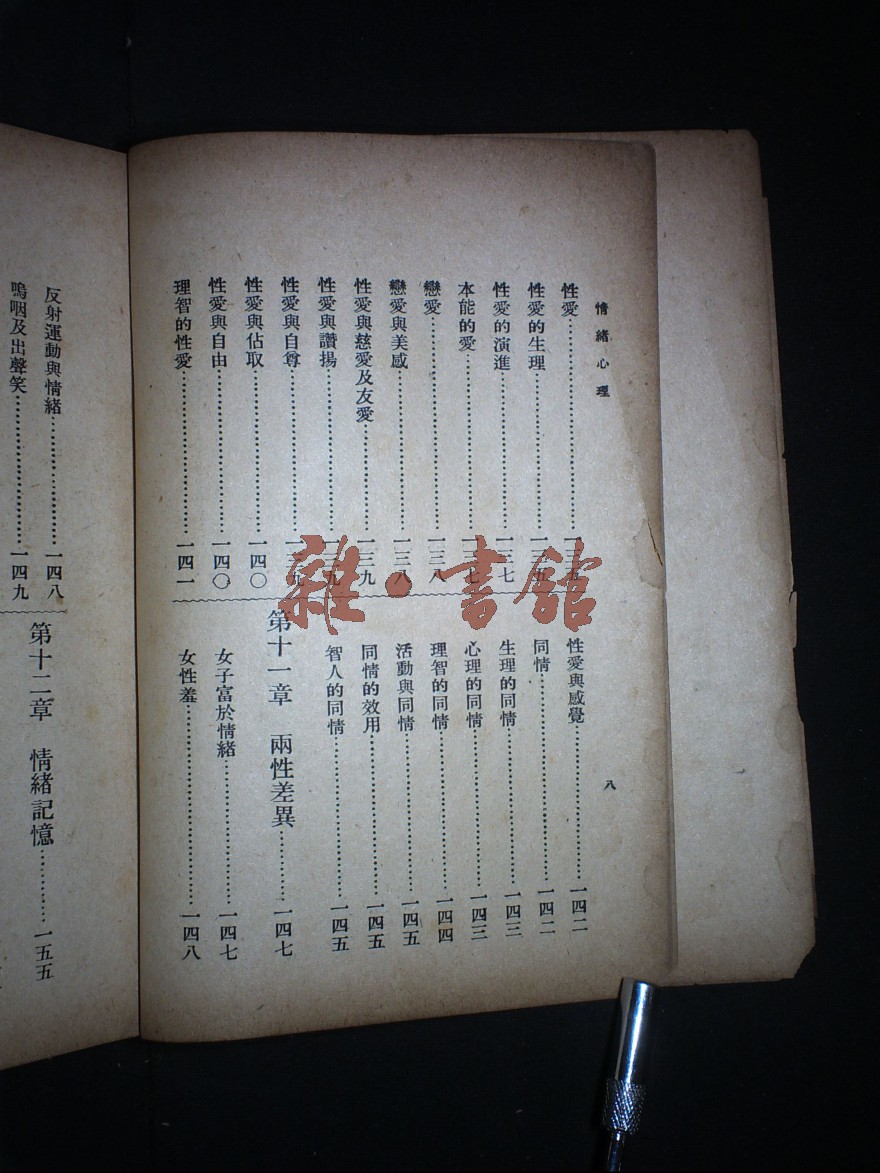 情緒心理
八
性愛……一三五
性愛的生理……一三五
性愛的演進……一三七
本能的愛……一三七
戀愛……一三八
戀愛與美感……一三八
性愛與慈愛及友愛……一三九
性愛與讚揚……一三九
性愛與自尊……一三九
性愛與佔取……一四〇
性愛與自由……一四〇
理智的性愛……一四一
性愛與感覺……一四二
同情……一四二
生理的同情……一四三
心理的同情……一四三
理智的同情……一四四
活動與同情……一四五
同情的效用……一四五
智人的同情……一四五
第十一章 兩性差異……一四七
女子富於情緒……一四七
女性羞……一四八
反射運動與情緒……一四八
嗚咽及出聲笑……一四九
第十二章 情緒記憶……一五五
雜·書館